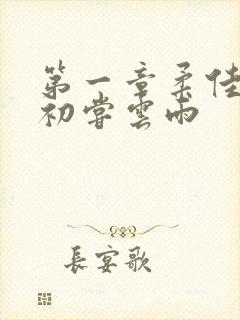 第一章柔佳
初尝雲雨
長宴歌